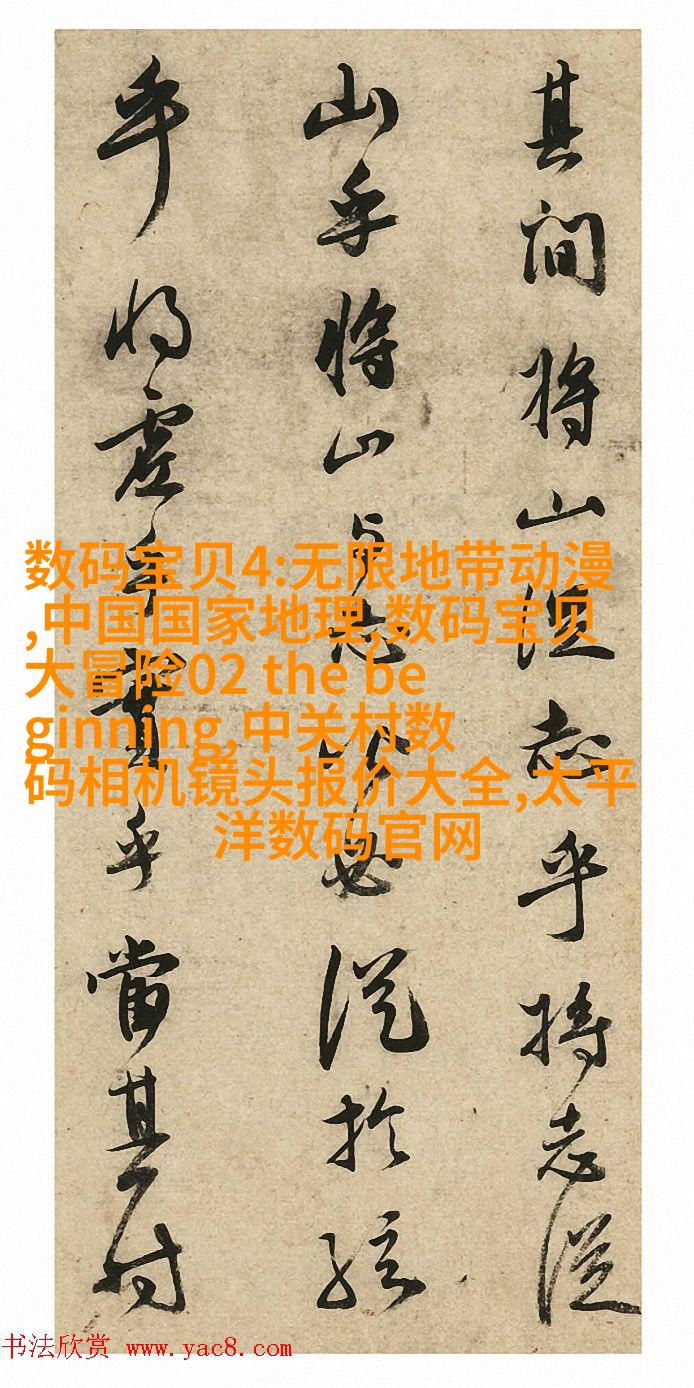 其間將山志乎將志從
山乎將山与志從於
乎將虛乎實乎當其
数码宝贝4:无限地带动漫
,中国国家地理,数码宝贝
大冒险02 the be
ginning,中关村数
码相机镜头报价大全,太平
洋数码官网
书法欣赏 www.yac8.com